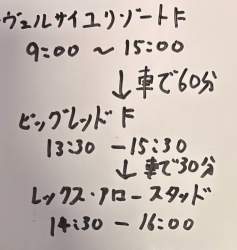 ヴェルサイユリゾートF
9:00 〜 15:00
↓車で60分
ビッグレッドF
13:30 - 15:30
↓車で30分
レックス・アロースタッド
14:30 - 16:00